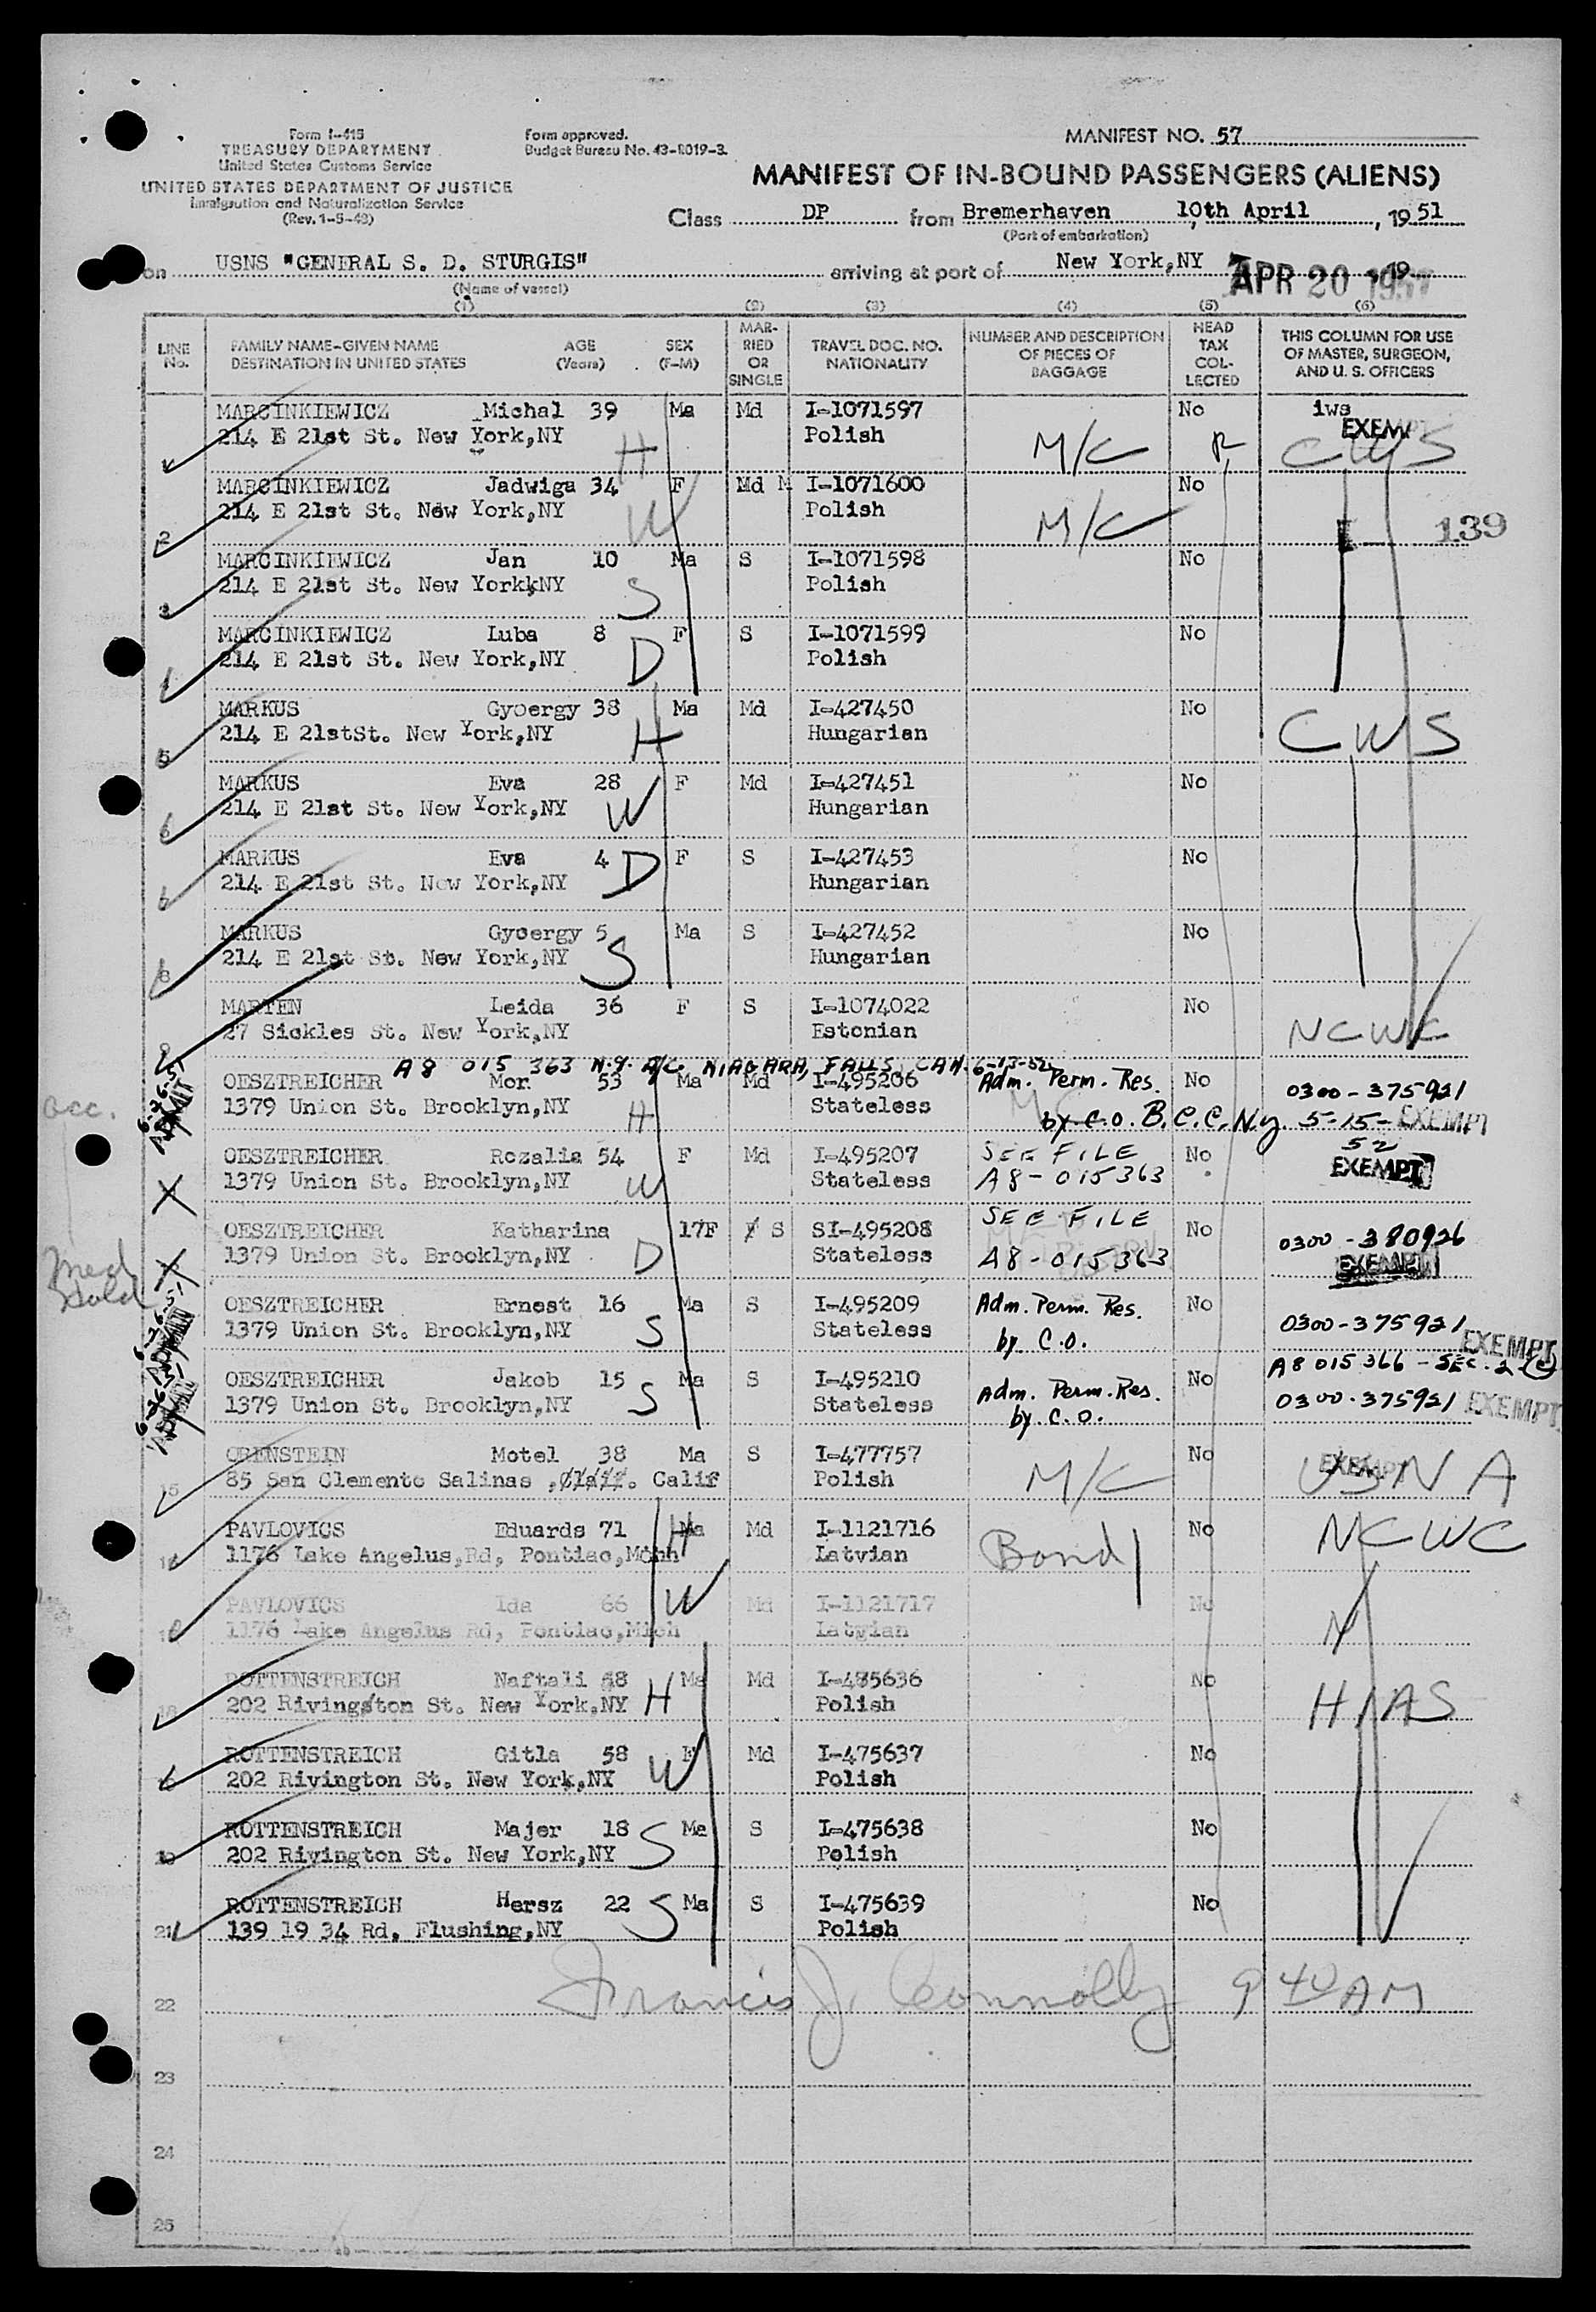 Form I-415
TREASURY DEPARTMENT
United States Customs Service
UNITED STATES DEPARTMENT OF JUSTICE
Immigration and Naturalization Service
(Rev. 1-5-49)
Form approved.
Budget Bureau No. 43-R019-3.
MANIFEST NO. 57
MANIFEST OF IN-BOUND PASSENGERS (ALIENS)
Class DP from Bremerhaven 10th April, 1951
(Port of embarkation)
on USNS "GENERAL S. D. STURGIS" arriving at port of New York,NY , 19
(Name of vessel)
APR 20 1951
(1) (2) (3) (4) (5) (6)
LINE No. FAMILY NAME-GIVEN NAME DESTINATION IN UNITED STATES AGE (Years) SEX (F-M) MARRIED OR SINGLE TRAVEL DOC. NO. NATIONALITY NUMBER AND DESCRIPTION OF PIECES OF BAGGAGE HEAD TAX COLLECTED THIS COLUMN FOR USE OF MASTER, SURGEON, AND U. S. OFFICERS
MARCINKIEWICZ Michal 39 Ma Md I-1071597 No iws
214 E 21st St. New York,NY H Polish M/C R CWS
1
MARCINKIEWICZ Jadwiga 34 F Md M I-1071600 No
214 E 21st St. New York,NY W Polish M/C I 139
2
MARCINKIEWICZ Jan 10 Ma S I-1071598 No
214 E 21st St. New YorkkNY S Polish
3
MARCINKIEWICZ Luba 8 F S I-1071599 No
214 E 21st St. New York,NY D Polish
MARKUS Gyoergy 38 Ma Md I-427450 No
214 E 21stSt. New York,NY H Hungarian CWS
5
MARKUS Eva 28 F Md I-427451 No
214 E 21st St. New York,NY W Hungarian
6
MARKUS Eva 4 F S I-427453 No
214 E 21st St. New York,NY D Hungarian
MARKUS Gyoergy 5 Ma S I-427452 No
214 E 21st St. New York,NY S Hungarian
8
MARTEN Leida 36 F S I-1074022 No
27 Sickles St. New York,NY Estonian NCWC
9
A8 015 363 N.Y. A/C. NIAGARA, FALLS, CAN. 6-13-52
OESZTREICHER Mor. 53 Ma Md I-495206 Adm. Perm. Res. No 0300-375921
1379 Union St. Brooklyn,NY H Stateless by C.O. B.C.C. N.Y. 5-15-52 EXEMPT
acc.
OESZTREICHER Rozalia 54 F Md I-495207 SEE FILE No
1379 Union St. Brooklyn,NY W Stateless A8-015363 EXEMPT
X
OESZTREICHER Katharina 17F S SI-495208 SEE FILE No 0300-380926
1379 Union St. Brooklyn,NY D Stateless A8-015363 EXEMPT
X
Med Hold
OESZTREICHER Ernest 16 Ma S I-495209 Adm. Perm. Res. No 0300-375921
1379 Union St. Brooklyn,NY S Stateless by C.O. EXEMPT
A8 015 366 - SEC. 2 (c)
OESZTREICHER Jakob 15 Ma S I-495210 Adm. Perm. Res. No
1379 Union St. Brooklyn,NY S Stateless by C.O. 0300-375921 EXEMPT
ORENSTEIN Motel 38 Ma S I-477757 No EXEMPT
85 San Clemente Salinas , Calif Polish M/C USNA
15
PAVLOVICS Eduards 71 Ma Md I-1121716 No NCWC
1176 Lake Angelus,Rd, Pontiac,Mchh H Latvian Bond
PAVLOVICS Ida 66 W Md I-1121717 No
1176 Lake Angelus Rd, Pontiac,Mich Latvian N
ROTTENSTREICH Naftali 58 Ma Md I-475636 No
202 Rivington St. New York,NY H Polish HIAS
ROTTENSTREICH Gitla 58 F Md I-475637 No
202 Rivington St. New York,NY W Polish
ROTTENSTREICH Majer 18 Ma S I-475638 No
202 Rivington St. New York,NY S Polish
ROTTENSTREICH Hersz 22 Ma S I-475639 No
139 19 34 Rd, Flushing,NY S Polish
21
Francis J. Connolly 9 40 AM
22
23
24
25